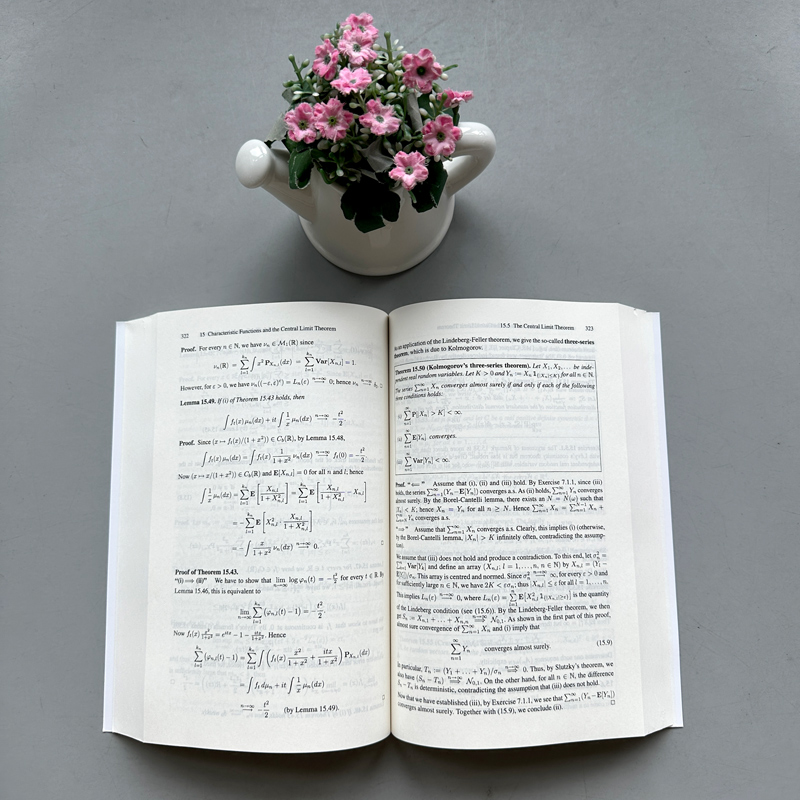 322 15 Characteristic Functions and the Central Limit Theorem
Proof. For every n ∈ ℕ, we have νₙ ∈ M₁(ℝ) since
νₙ(ℝ) = ∑_{l=1}^{kₙ} ∫ x² P_{X_{n,l}}(dx) = ∑_{l=1}^{kₙ} Var[X_{n,l}] = 1.
However, for ε > 0, we have νₙ((−ε, ε)ᶜ) = Lₙ(ε) →^{n→∞} 0; hence νₙ
Lemma 15.49. If (i) of Theorem 15.43 holds, then
∫ fₜ(x) μₙ(dx) + it ∫ 1/x μₙ(dx) →^{n→∞} −t²/2.
Proof. Since (x ↦ fₜ(x)/(1 + x²)) ∈ C_b(ℝ), by Lemma 15.48,
∫ fₜ(x) μₙ(dx) = ∫ fₜ(x) 1/(1 + x²) νₙ(dx) →^{n→∞} fₜ(0) = −t²/2.
Now (x ↦ x/(1 + x²)) ∈ C_b(ℝ) and E[X_{n,l}] = 0 for all n and l; hence
∫ 1/x μₙ(dx) = ∑_{l=1}^{kₙ} E[X_{n,l}/(1 + X²_{n,l})] = ∑_{l=1}^{kₙ} E[X_{n,l}/(1 + X²_{n,l}) − X_{n,l}]
= −∑_{l=1}^{kₙ} E[X²_{n,l} · X_{n,l}/(1 + X²_{n,l})]
= −∫ x/(1 + x²) νₙ(dx) →^{n→∞} 0. □
Proof of Theorem 15.43.
"(i) ⟹ (ii)" We have to show that lim_{n→∞} log φₙ(t) = −t²/2 for every t ∈ ℝ. By
Lemma 15.46, this is equivalent to
lim_{n→∞} ∑_{l=1}^{kₙ} (φ_{n,l}(t) − 1) = −t²/2.
Now fₜ(x) x²/(1+x²) = e^{itx} − 1 − itx/(1+x²). Hence
∑_{l=1}^{kₙ} (φ_{n,l}(t) − 1) = ∑_{l=1}^{kₙ} ∫ (fₜ(x) x²/(1 + x²) + itx/(1 + x²)) P_{X_{n,l}}(dx)
= ∫ fₜ dμₙ + it ∫ 1/x μₙ(dx)
→^{n→∞} −t²/2 (by Lemma 15.49).
15.5 The Central Limit Theorem 323
an application of the Lindeberg-Feller theorem, we give the so-called three-series
theorem, which is due to Kolmogorov.
Theorem 15.50 (Kolmogorov's three-series theorem). Let X₁, X₂, … be inde-
pendent real random variables. Let K > 0 and Yₙ := Xₙ 1_{{|Xₙ|≤K}} for all n ∈ ℕ.
The series ∑_{n=1}^∞ Xₙ converges almost surely if and only if each of the following
three conditions holds:
(i) ∑_{n=1}^∞ P[|Xₙ| > K] < ∞.
∑_{n=1}^∞ E[Yₙ] converges.
∑_{n=1}^∞ Var[Yₙ] < ∞.
Proof. "⟸" Assume that (i), (ii) and (iii) hold. By Exercise 7.1.1, since (iii)
holds, the series ∑_{n=1}^∞ (Yₙ − E[Yₙ]) converges a.s. As (ii) holds, ∑_{n=1}^∞ Yₙ converges
almost surely. By the Borel-Cantelli lemma, there exists an N = N(ω) such that
|Xₙ| < K; hence Xₙ = Yₙ for all n ≥ N. Hence ∑_{n=1}^∞ Xₙ = ∑_{n=1}^{N−1} Xₙ +
∑_{n=N}^∞ Yₙ converges a.s.
"⟹" Assume that ∑_{n=1}^∞ Xₙ converges a.s. Clearly, this implies (i) (otherwise,
by the Borel-Cantelli lemma, |Xₙ| > K infinitely often, contradicting the assump-
tion).
We assume that (iii) does not hold and produce a contradiction. To this end, let σₙ² =
∑_{l=1}^n Var[Yₗ] and define an array (X_{n,l}; l = 1, …, n, n ∈ ℕ) by X_{n,l} = (Yₗ −
E[Yₗ])/σₙ. This array is centred and normed. Since σₙ² →^{n→∞} ∞, for every ε > 0 and
for sufficiently large n ∈ ℕ, we have 2K < εσₙ; thus |X_{n,l}| ≤ ε for all l = 1, …, n.
This implies Lₙ(ε) →^{n→∞} 0, where Lₙ(ε) = ∑_{l=1}^n E[X²_{n,l} 1_{{|X_{n,l}|>ε}}] is the quantity
of the Lindeberg condition (see (15.6)). By the Lindeberg-Feller theorem, we then
get Sₙ := X_{n,1} + … + X_{n,n} ⟹^{n→∞} N_{0,1}. As shown in the first part of this proof,
almost sure convergence of ∑_{n=1}^∞ Xₙ and (i) imply that
∑_{n=1}^∞ Yₙ converges almost surely. (15.9)
In particular, Tₙ := (Y₁ + … + Yₙ)/σₙ ⟹^{n→∞} 0. Thus, by Slutzky's theorem, we
also have (Sₙ − Tₙ) ⟹^{n→∞} N_{0,1}. On the other hand, for all n ∈ ℕ, the difference
Sₙ − Tₙ is deterministic, contradicting the assumption that (iii) does not hold.
Now that we have established (iii), by Exercise 7.1.1, we see that ∑_{n=1}^∞ (Yₙ − E[Yₙ])
converges almost surely. Together with (15.9), we conclude (ii). □